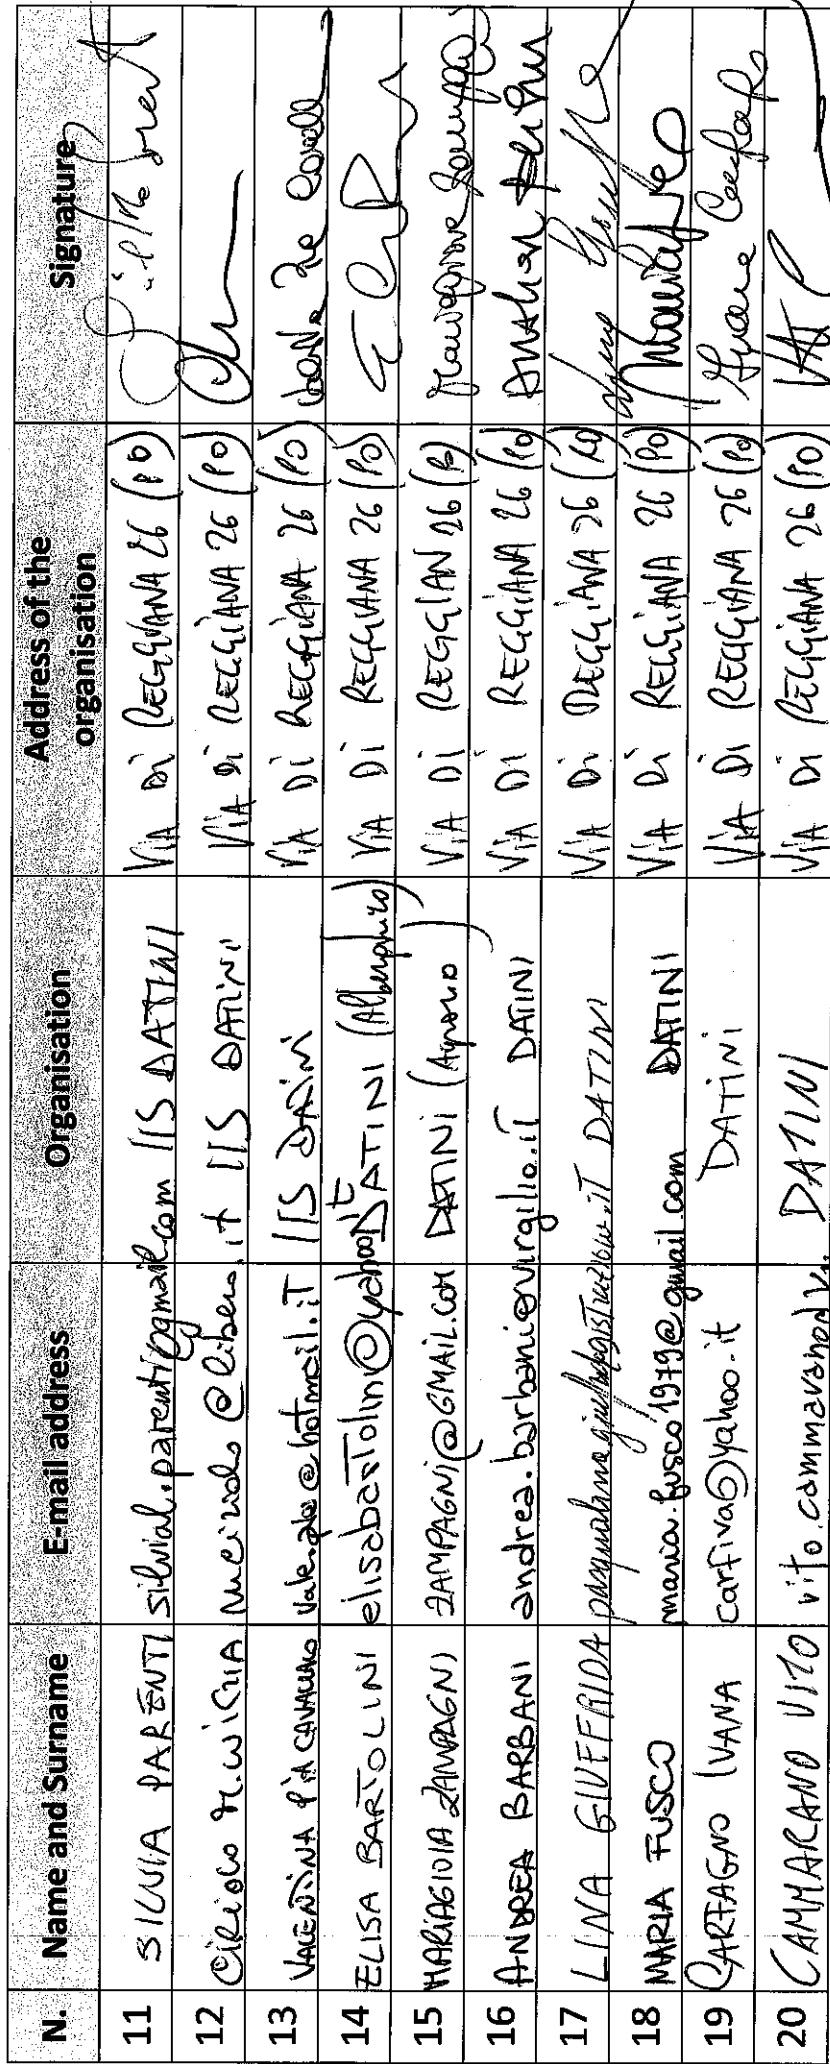 N. Name and Surname E-mail address Organisation Address of the organisation Signature
11 SILVIA PARENTI silvial.parenti@gmail.com IIS DATINI VIA Di REGGIANA 26 (PO)
12 CIRIOLO @libero.it IIS DATINI VIA Di REGGIANA 26 (PO)
13 VALENTINA PIA CAVALLARO @hotmail.iT IIS DATINI VIA Di REGGIANA 26 (PO)
14 ELISA BARTOLINI elisabartolini@yahoo.it DATINI (Alberghiero) VIA Di REGGIANA 26 (PO)
15 MARIAGIOIA ZAMPAGNI ZAMPAGNI@GMAIL.COM DATINI (Agrario) VIA Di REGGIAN 26 (PO)
16 ANDREA BARBANI andrea.barbani@virgilio.it DATINI VIA Di REGGIANA 26 (PO)
17 LINA GIUFFRIDA DATINI VIA Di REGGIANA 26 (PO)
18 MARIA FUSCO maria.fusco1979@gmail.com DATINI VIA Di REGGIANA 26 (PO)
19 CARFAGNO IVANA carfiva@yahoo.it DATINI VIA Di REGGIANA 26 (PO)
20 CAMMARANO VITO DATINI VIA Di REGGIANA 26 (PO)